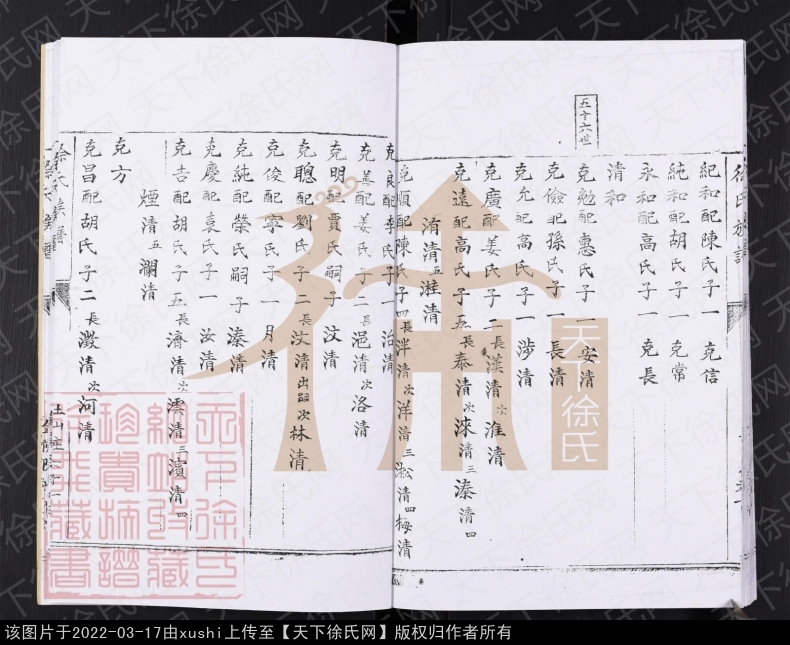 五十六世
徐氏族譜
紀和配陳氏子一克信
純和配胡氏子一克常
永和配高氏子一克長
清和
克勉配惠氏子一安清
克儉配孫氏子一長清
克允配高氏子一涉清
克廣配姜氏子二長漢清次淮清
克遠配高氏子五長泰清次淶清三溱清四
淯清五淮清
克順配陳氏子四長泮清次洋清三淞清四梅清
克良配李氏子一治清
克善配姜氏子二長浥清次洛清
克明配賈氏嗣子汶清
克聰配劉氏子二長汶清出嗣次林清
克俊配寧氏子一月清
克純配榮氏嗣子溱清
克慶配袁氏子一汝清
克吉配胡氏子五長濟清次澐清三濱清四
煙清五瀾清
克方
克昌配胡氏子二長澂清次河清
天下徐氏
天下徐氏網收藏珍貴摘譜徐飛藏書
该图片于2022-03-17由xushi上传至【天下徐氏网】版权归作者所有